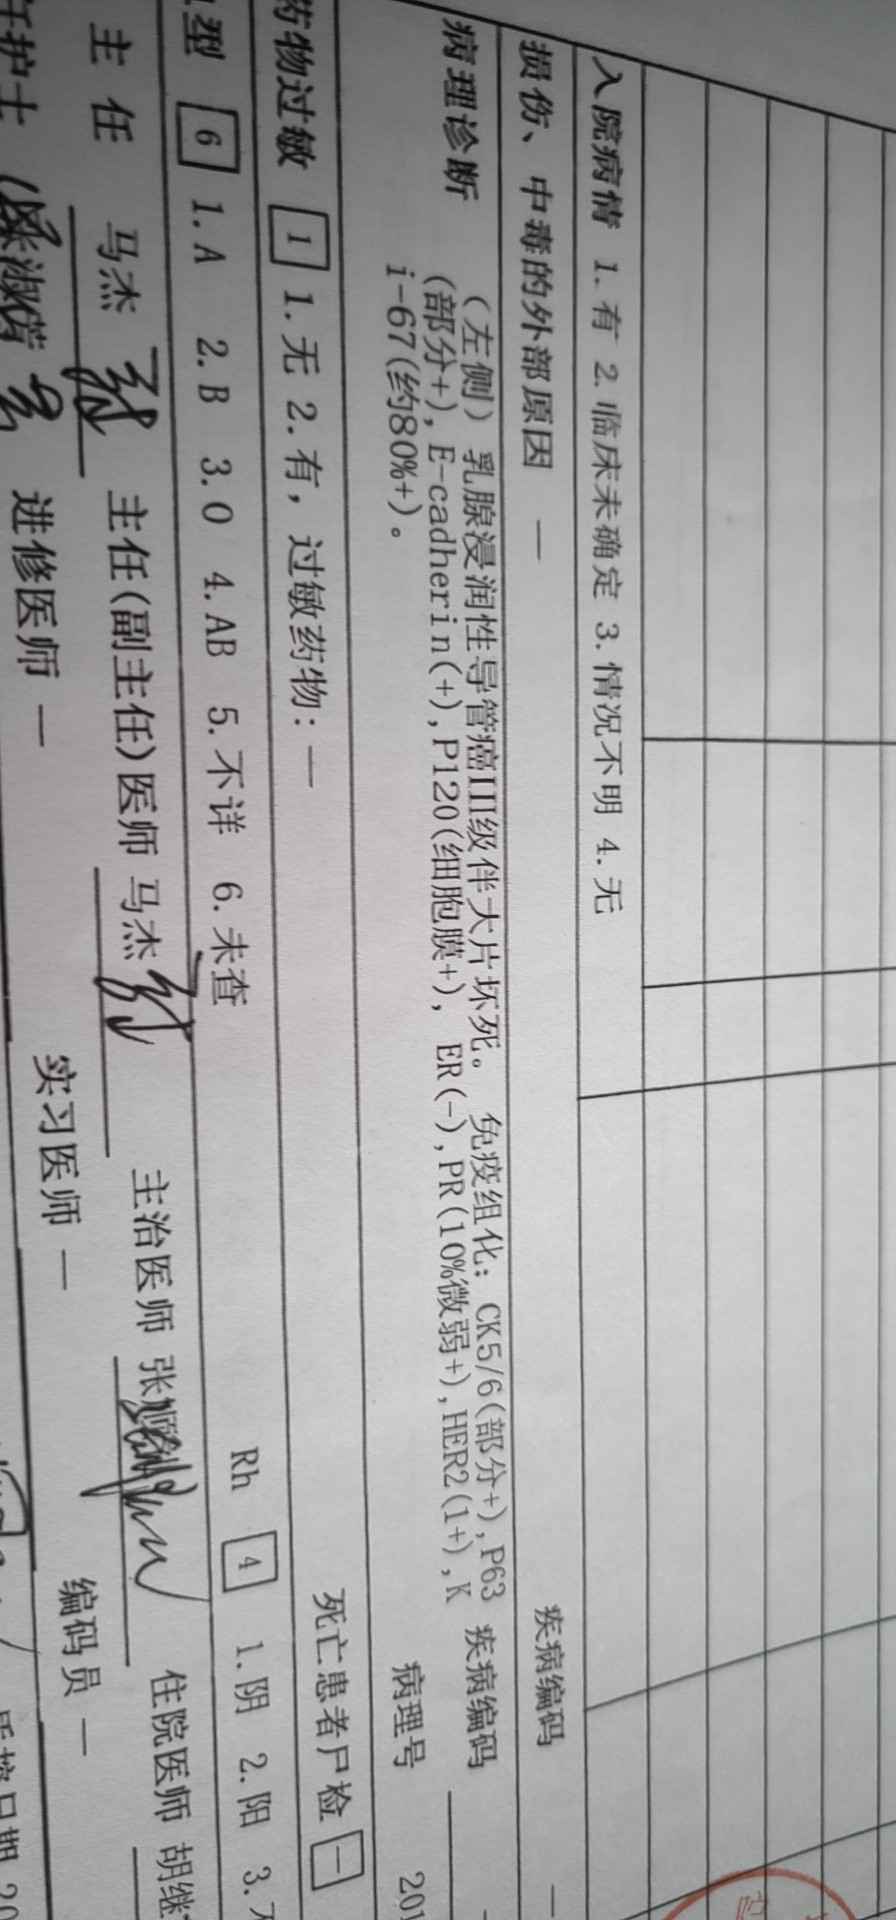 入院病情 1. 有 2. 临床未确定 3. 情况不明 4. 无
损伤、中毒的外部原因 — 疾病编码 —
病理诊断 (左侧) 乳腺浸润性导管癌III级伴大片坏死。 免疫组化: CK5/6(部分+), P63 疾病编码
(部分+), E-cadherin(+), P120(细胞膜+), ER(-), PR(10%微弱+), HER2(1+), K
i-67(约80%+)。 病理号 201
药物过敏 1 1. 无 2. 有, 过敏药物: — 死亡患者尸检 —
型 6 1. A 2. B 3. O 4. AB 5. 不详 6. 未查 Rh 4 1. 阴 2. 阳 3.
主任 马杰 主任(副主任)医师 马杰 主治医师 张 住院医师 胡继
任护士 进修医师 — 实习医师 — 编码员 — 质控日期 20
院